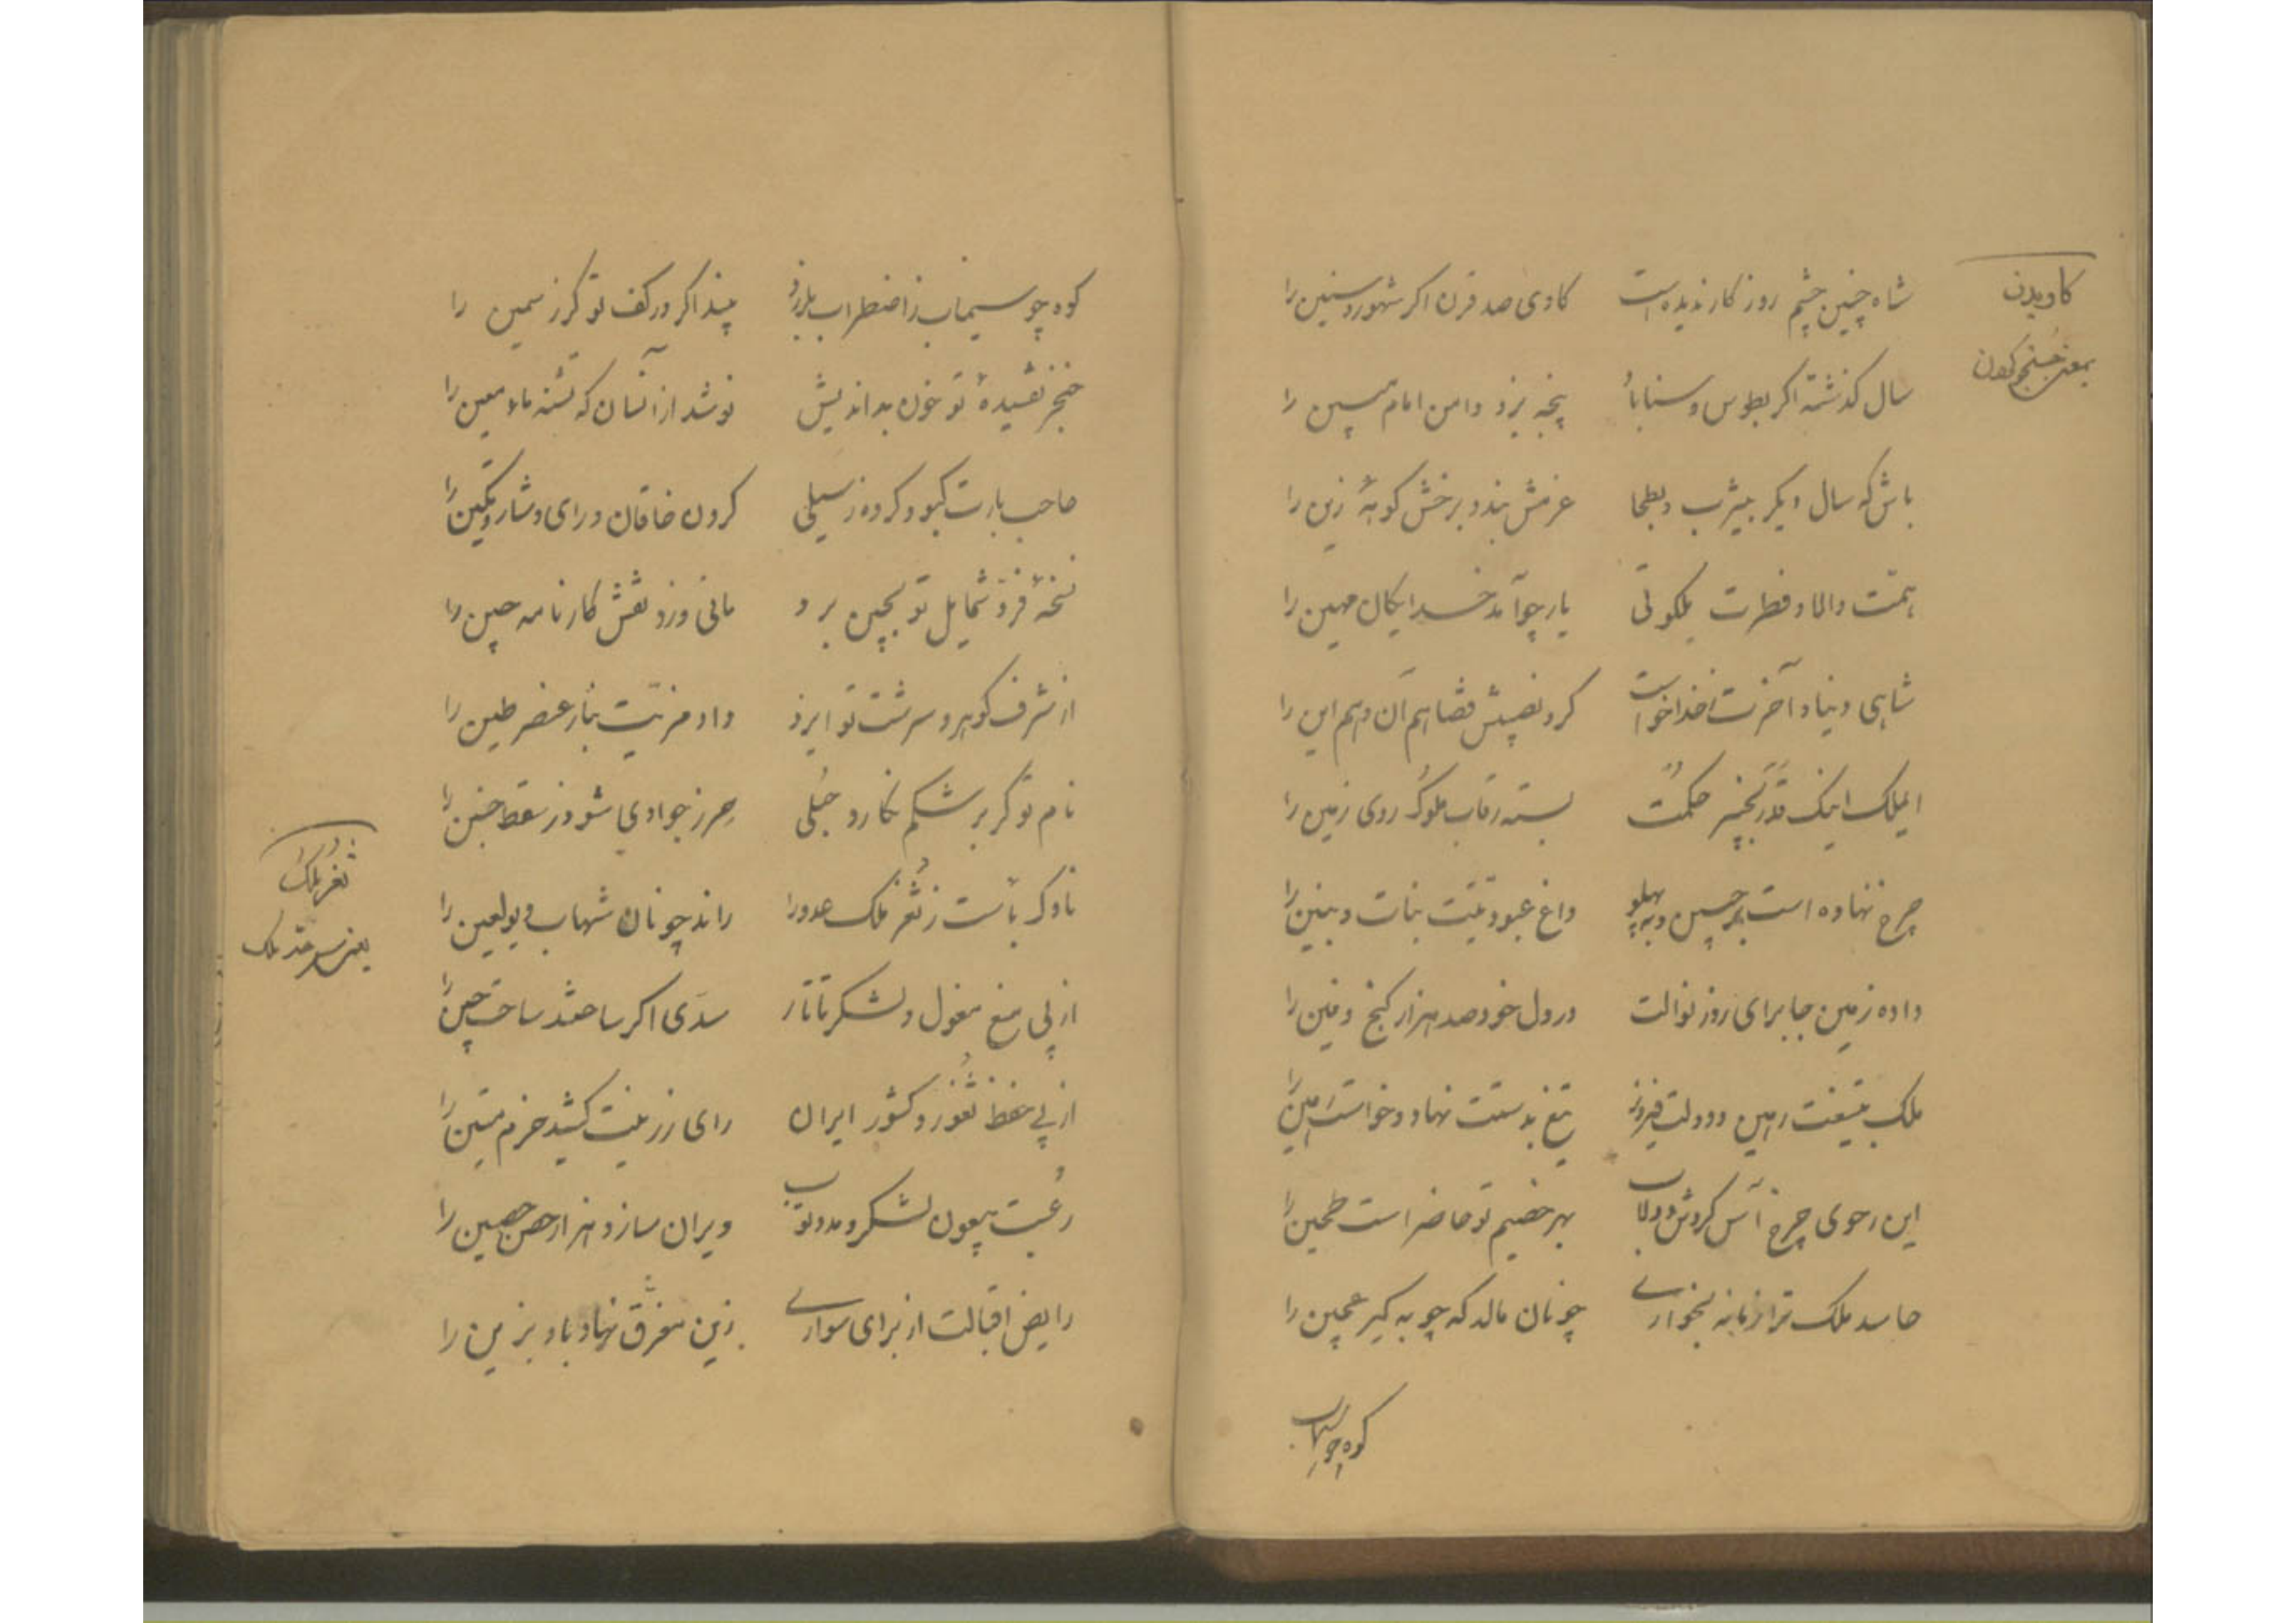 شاه چنین چشم روزکار ندیده است کاوی صد قرن اکر شهور و سنین را
سال کذشته اکر بطوس و سناباد پنجه بزد دامن امام مبین را
باش که سال دیکر بیثرب و بطحا عزمش بندد برخش کوههٔ زین را
همّت والا و فطرت ملکوتی یار چو آمد خدایکان مهین را
شاهی دنیا و آخرت ز خدا خواست کرد نصیبش قضا هم آن و هم این را
ایملک اینک قَدَر بخنجر حکمت بسته رقاب ملوک روی زمین را
چرخ نهاده است بر جبین و به پهلو داغ عبودیّت بنات و بنین را
داده زمین جا برای روز نوالت در دل خود صد هزار کنج دفین را
ملک بتیغت رهین و دولت فیروز تیغ بدستت نهاد و خواست امین را
این رحوی چرخ آس کردش دولاب بهر خصیم تو حاضر است طحین را
حاسد ملک ترا زمانه بخواری چونان مالد که چوبه کیر عجین را
کوه چو سیماب
کاویدن
بمعنی جستجو کردن
کوه چو سیماب ز اضطراب بلرزد بیند اکر در کف تو کرز سمین را
خنجر تفسیدهٔ تو خون بداندیش نوشد از آنسان که تشنه ماء معین را
حاجب بارت کبود کرده ز سیلی کردن خاقان و رای و شار و تکین را
نسخهٔ فرّ و شمایل تو بچین برد مانی و زد نقش کارنامه چین را
از شرف کوهر و سرشت تو ایزد داد مزیّت بنار عنصر طین را
نام تو کر بر شکم نکارد حُبلی حرز جوادی شود ز سقط جنین را
ناوک بأست ز ثُغر ملک عدو را راند چونان شهاب دیو لعین را
از پی منع مغول و لشکر تاتار سدّی اکر ساختند ساحت چین را
از پی حفظ ثُغور و کشور ایران رای رزینت کشید حزم متین را
رُعبت بیعون لشکر و مدد توپ ویران سازد هزار حصن حصین را
رایض اقبالت از برای سواری زین مغرّق نهاد باد بزین را
ثُغر ملک
یعنی سرحد ملک